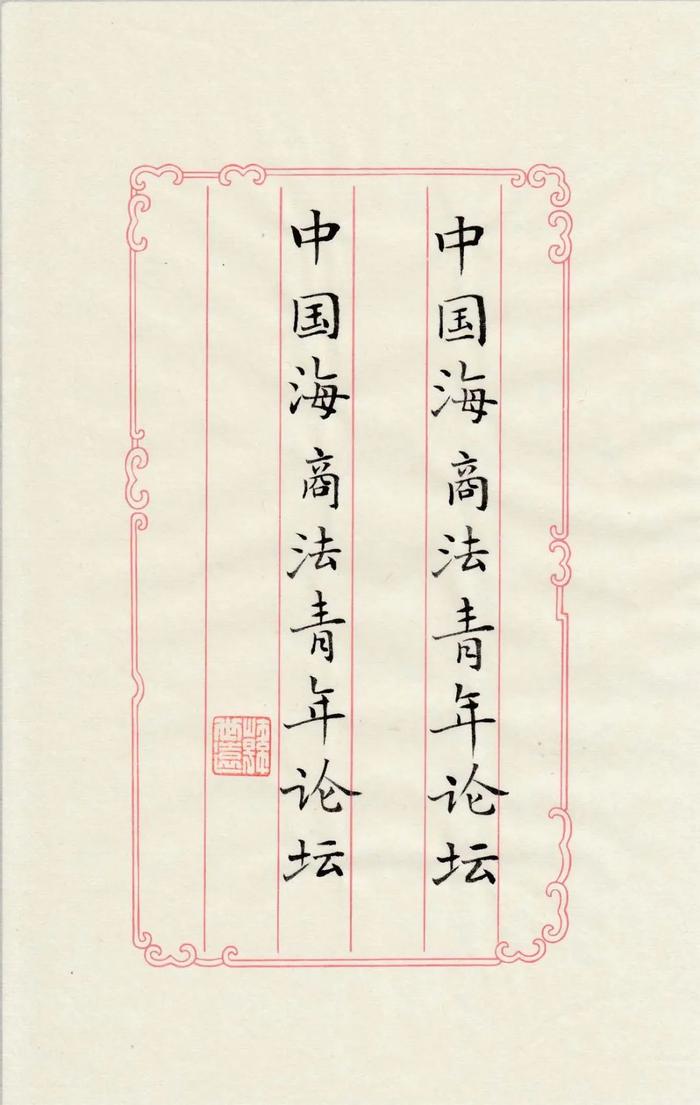 中国海商法青年论坛
中国海商法青年论坛